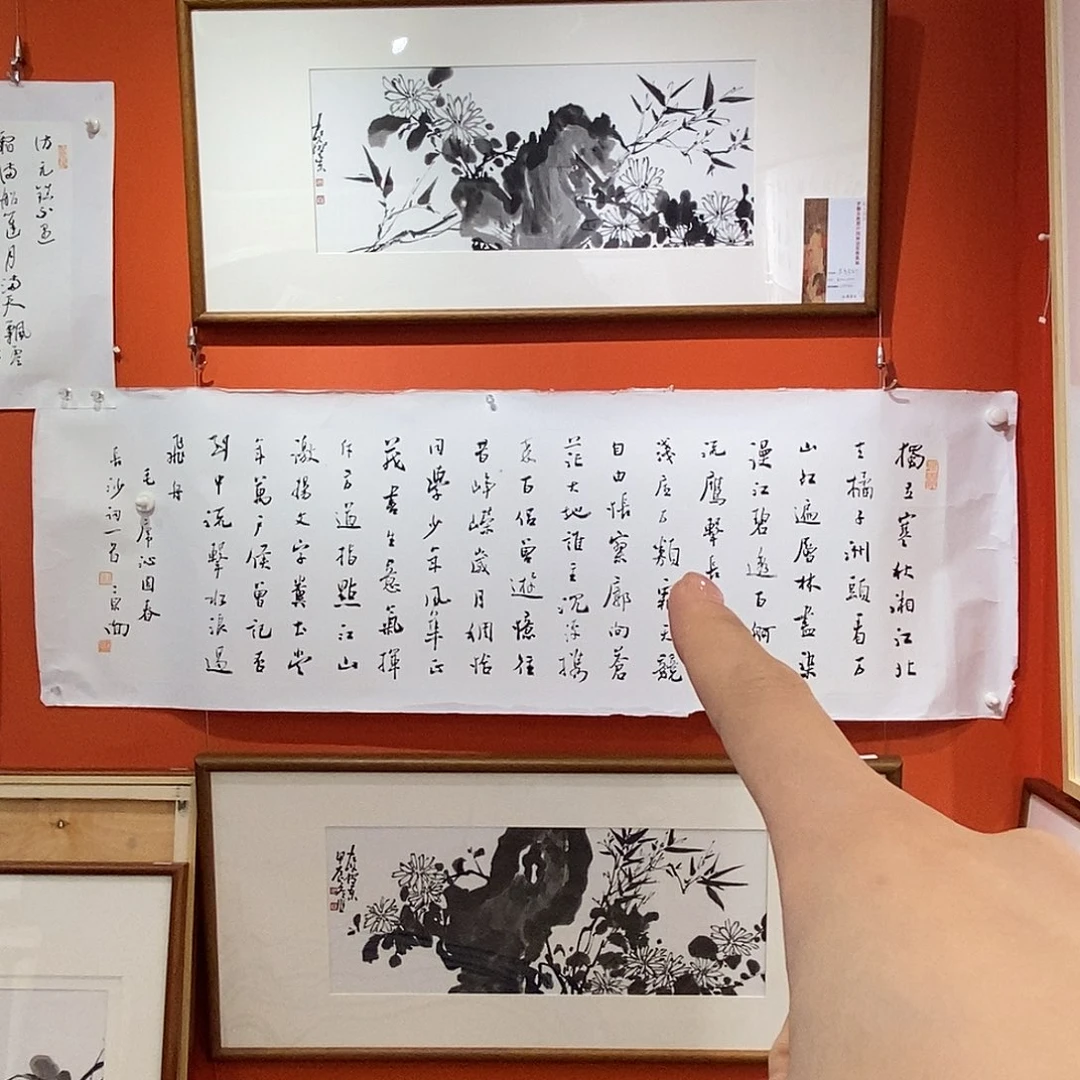 獨立寒秋湘江北
去橘子洲頭看万
山紅遍層林盡染
漫江碧透百舸
流鷹擊長
淺底万類霜天競
自由悵寥廓向蒼
茫大地誰主沉浮攜
來百侶曾遊憶往
昔崢嶸歲月稠恰
同學少年風華正
茂書生意氣揮
斥方遒指點江山
激揚文字糞土當
年萬户侯曾記否
到中流擊水浪遏
飛舟
毛席沁園春
長沙詞一首
霜滿船蓬月滿天飄零